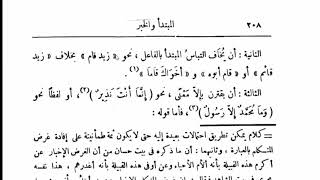 ٢٠٨ المبتدأ والخبر
الثانية : أن يُخَافَ التباسُ المبتدأ بالفاعل ، نحو « زيد قام » بخلاف « زيد
قائم » أو « قام أبوه » و « أخَوَاكَ قَامَا » (١).
الثالثة : أن يقترن بإلّا مَعْنًى ، نحو ( إنَّمَا أَنْتَ نَذِيرٌ )(٢)، أو لفظًا نحو
( وَمَا مُحَمَّدٌ إلَّا رَسُولٌ )(٣)، فأما قوله :
= كلام يمكن تطريق احتمالات بعيدة إليه حتى لا يكون ثمة طمأنينة على إفادة غرض
المتكلم بالعبارة ، وثانيهما : أن ما ذكره فى بيت حسان من أن الغرض الإخبار عن
أكرم هذه القبيلة بأنه ألأم الأحياء وعن أوفى هذه القبيلة بأنه أغدرهم ، هذا نفسه